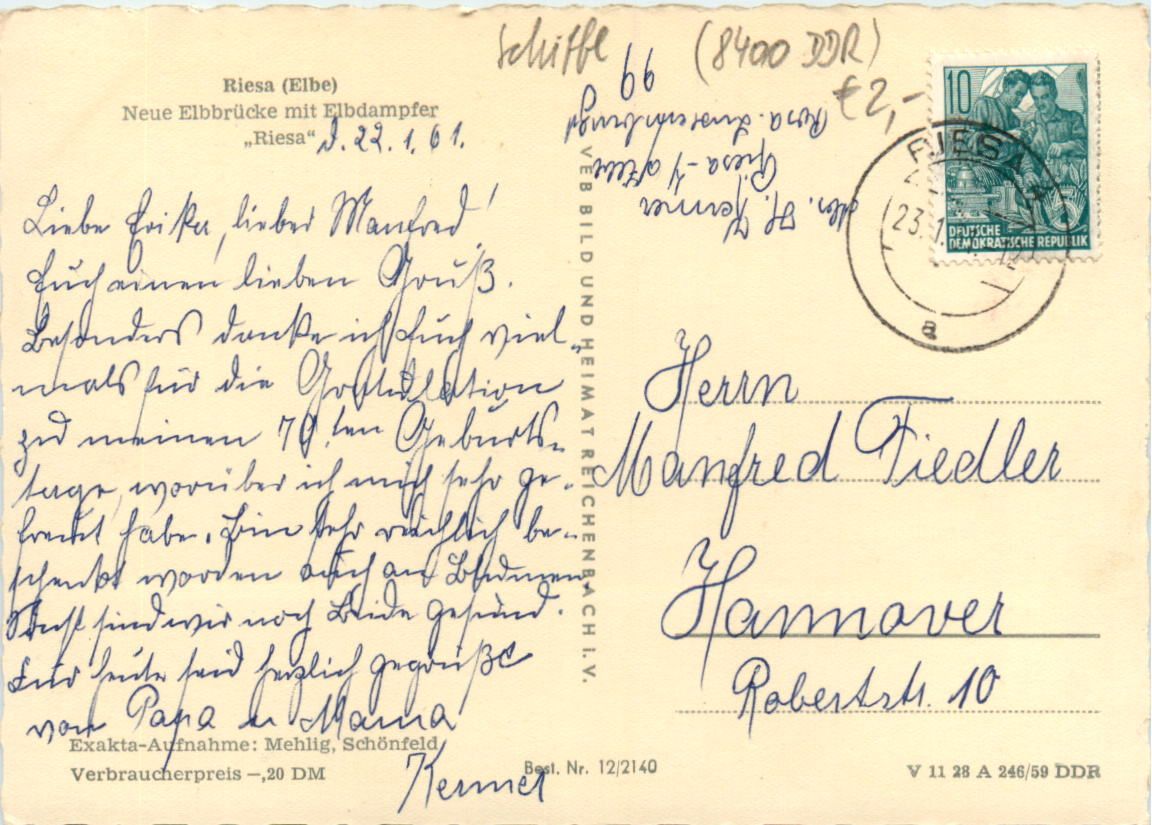 Schiffe (8400 DDR)
€ 2,-
Riesa (Elbe)
Neue Elbbrücke mit Elbdampfer
„Riesa“ d. 22. 1. 61.
Liebe Erika, lieber Manfred!
Euch einen lieben Gruß.
Besonders danke ich Euch viel-
mals für die Gratulation
zu meinen 70.ten Geburts-
tage, worüber ich mich sehr ge-
freut habe. Bin sehr reichlich be-
schenkt worden auch an Blumen.
Sonst sind wir noch Beide gesund.
Für heute seid herzlich gegrüßt
von Papa u Mama
Kermer
Exakta-Aufnahme: Mehlig, Schönfeld
Verbraucherpreis -,20 DM
VEB BILD UND HEIMAT REICHENBACH I. V.
Best. Nr. 12/2140
V 11 28 A 246/59 DDR
Abs. H. Kermer
Riesa-4 a/Elbe
Rosa-Luxemburgst
99
10
DEUTSCHE
DEMOKRATISCHE REPUBLIK
RIESA
23. 1.
a
Herrn
Manfred Fiedler
Hannover
Robertstr. 10